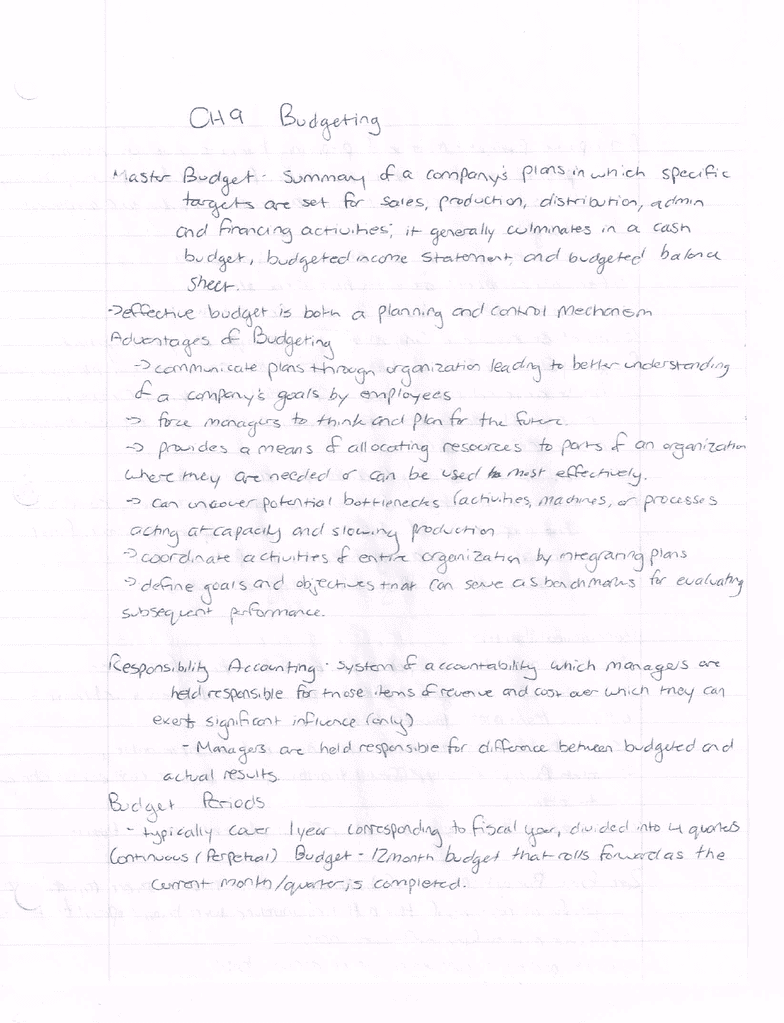 CH 9 Budgeting
Master Budget - Summary of a company's plans in which specific
targets are set for sales, production, distribution, admin
and financing activities; it generally culminates in a cash
budget, budgeted income statement, and budgeted balance
sheet.
→ effective budget is both a planning and control mechanism
Advantages of Budgeting
→ communicate plans through organization leading to better understanding
of a company's goals by employees
→ force managers to think and plan for the future.
→ provides a means of allocating resources to parts of an organization
where they are needed or can be used most effectively.
→ can uncover potential bottlenecks (activities, machines, or processes
acting at capacity and slowing production
→ coordinate activities of entire organization by integrating plans
→ define goals and objectives that can serve as benchmarks for evaluating
subsequent performance.
Responsibility Accounting - system of accountability which managers are
held responsible for those items of revenue and cost over which they can
exert significant influence (only)
- Managers are held responsible for difference between budgeted and
actual results.
Budget Periods
- typically cover 1 year corresponding to fiscal year, divided into 4 quarters
Continuous (Perpetual) Budget - 12 month budget that rolls forward as the
current month/quarter is completed.